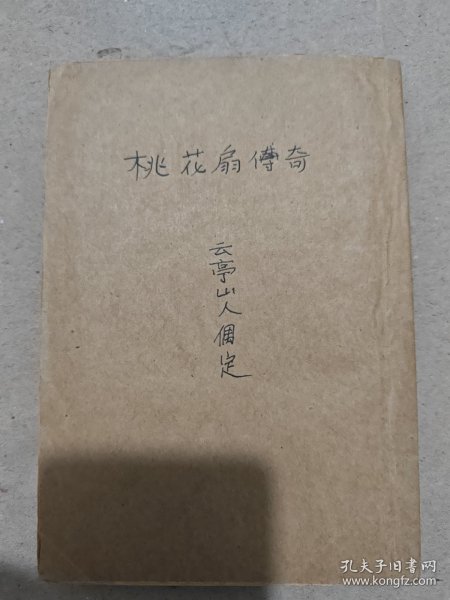 桃花扇傳奇
云亭山人偶定
孔夫子旧书网
www.kongfz.com